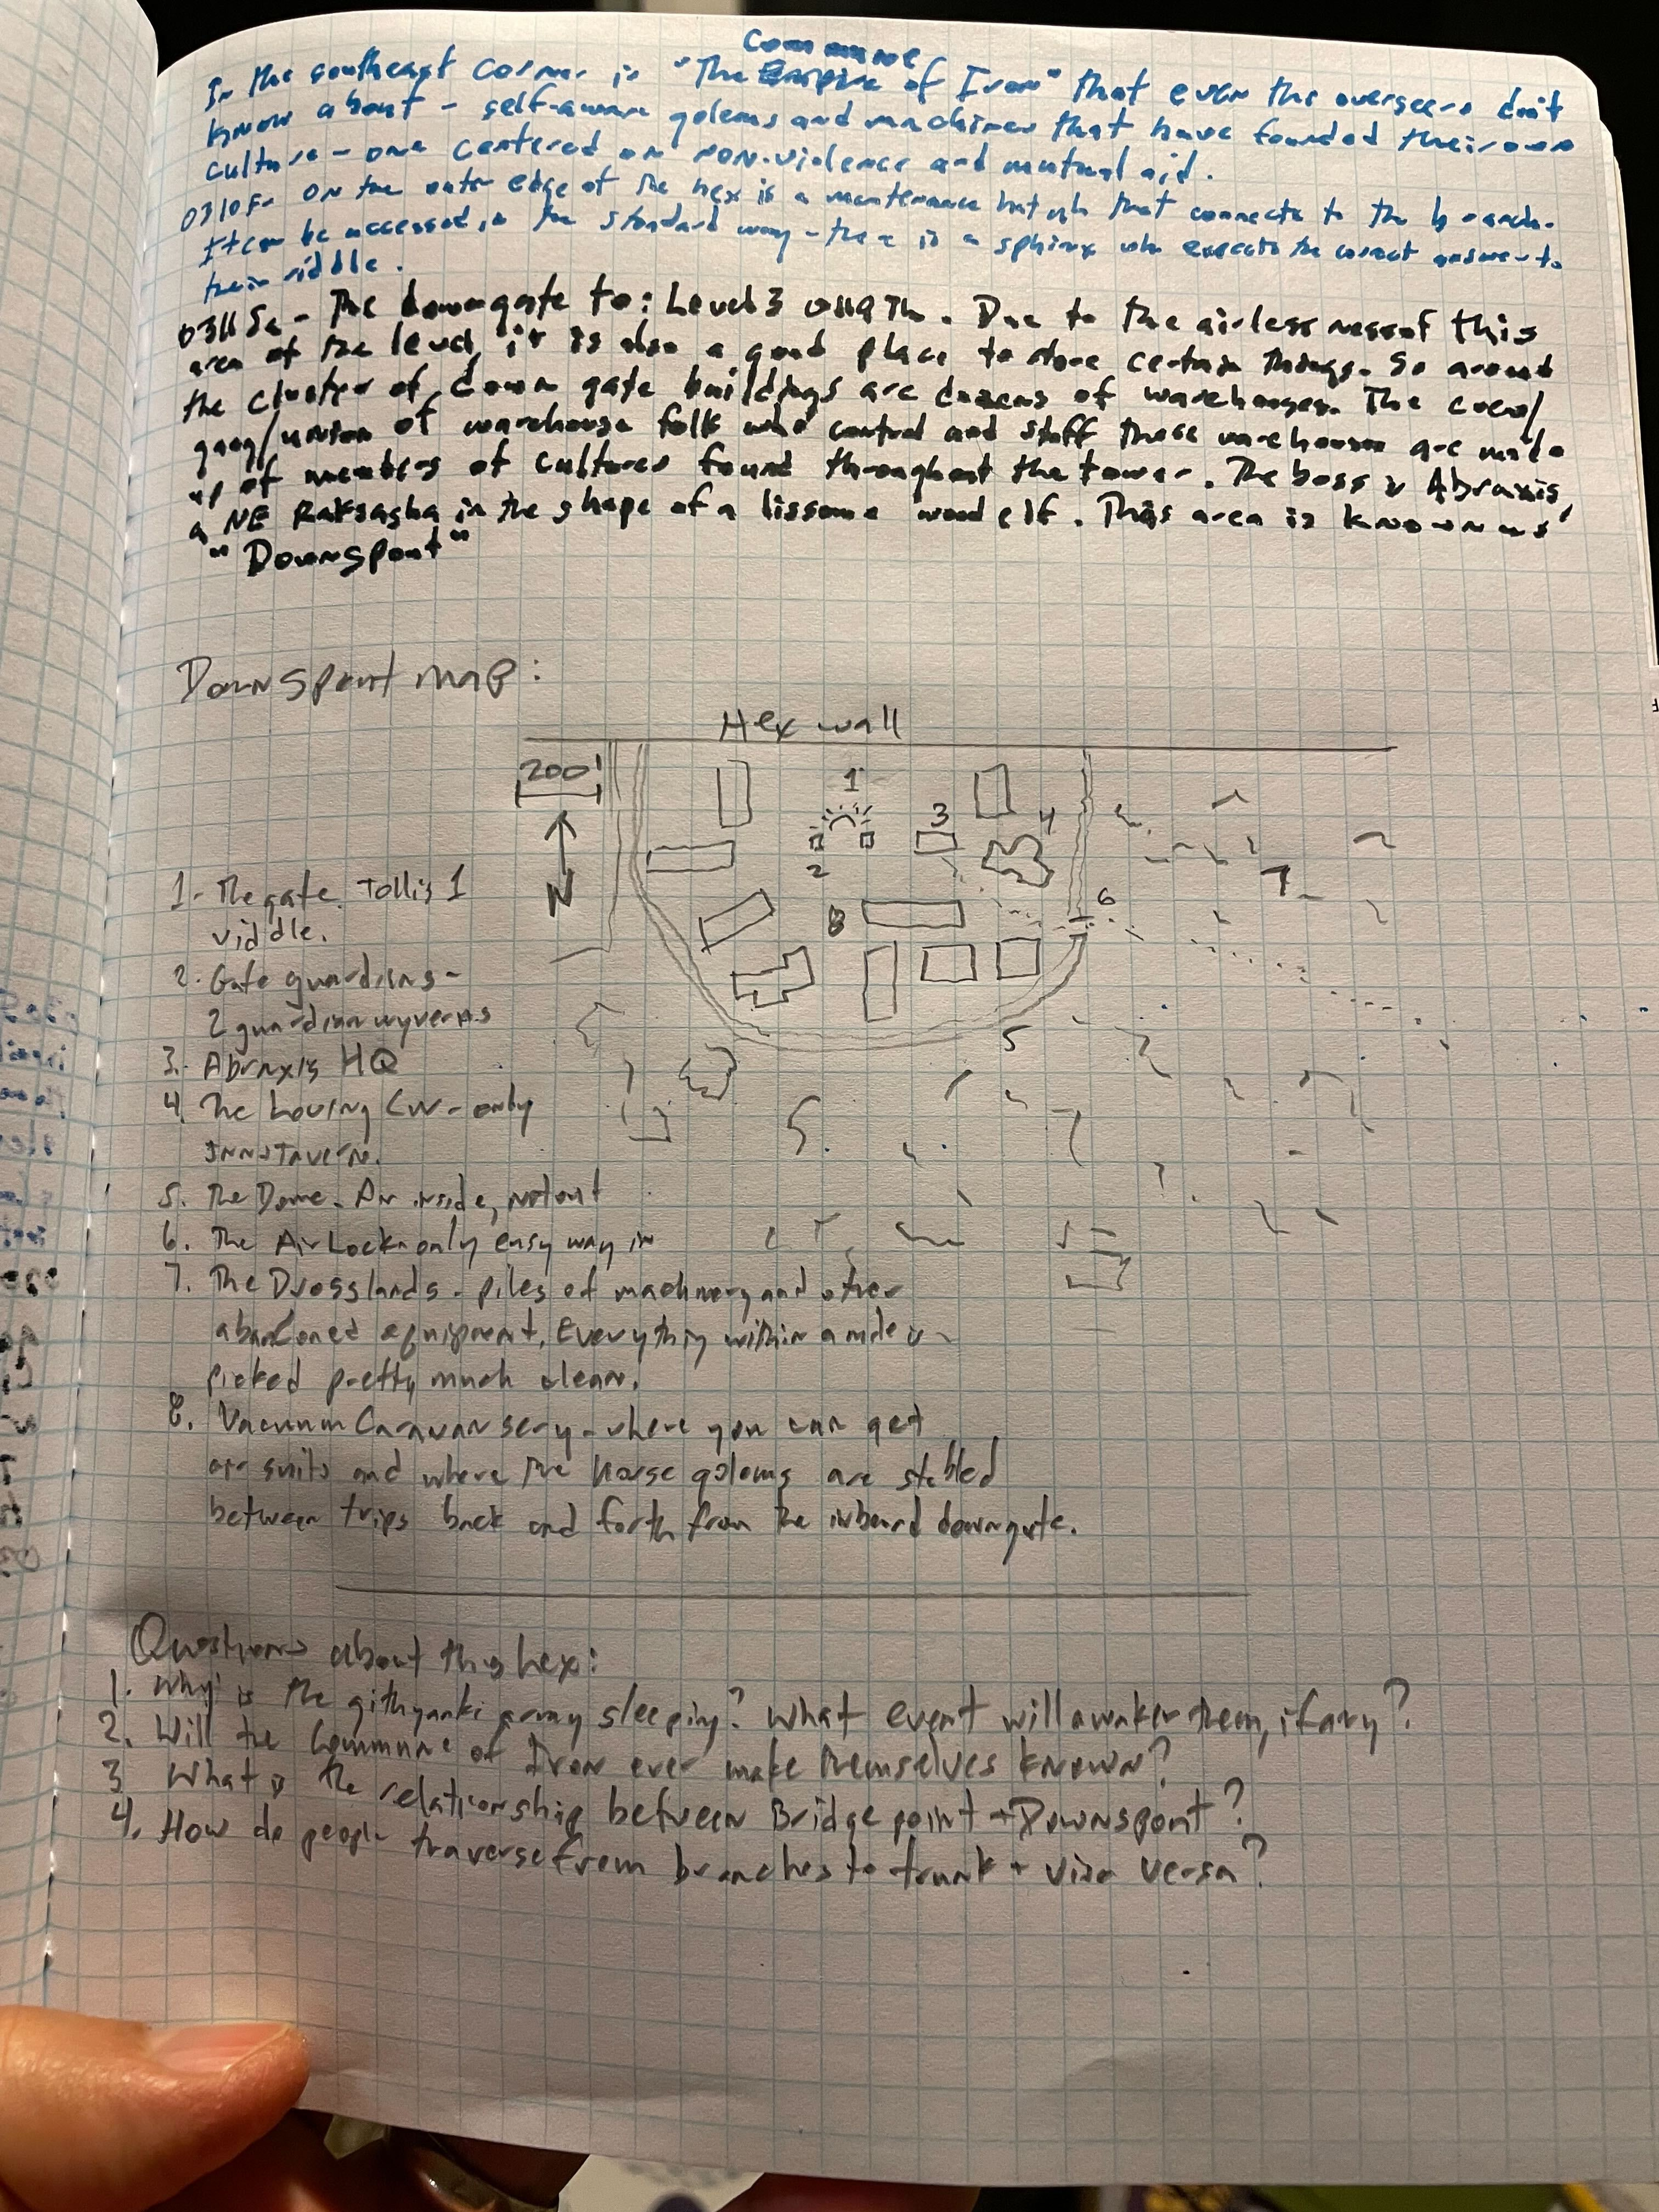 Commune
In the southeast corner is "The Empire of Iron" that even the overseers don't
know about - self-aware golems and machines that have founded their own
culture - one centered on non-violence and mutual aid.
0310F- On the outer edge of the hex is a maintenance hatch that connects to the branch.
It can be accessed in the standard way - there is a sphinx who expects the correct answer to
their riddle.
0311Se - The downgate to: Level 3 Th. Due to the airlessness of this
area of the level, it is also a good place to store certain things. So around
the cluster of down gate buildings are dozens of warehouses. The crew/
gang/union of warehouse folk who control and staff these warehouses are made
up of members of cultures found throughout the tower. The boss is Abraxis,
a NE Raksasha in the shape of a lissome wood elf. This area is known as
"Downspout"
Downspout map:
Hex wall
200'
1
3
4
2
N
6
7
8
5
1- The gate. Toll is 1
riddle.
2. Gate guardians -
2 guardian wyverns
3. Abraxis HQ
4. The Loving Cup - only
Inn + Tavern.
5. The Dome - Air inside, not out
6. The Air Lock - only easy way in
7. The Drosslands - piles of machinery and other
abandoned equipment. Everything within a mile is
picked pretty much clean.
8. Vacuum Caravansery - where you can get
air suits and where the horse golems are stabled
between trips back and forth from the inboard downgate.
Questions about this hex:
1. Why is the githyanki army sleeping? What event will awaken them, if any?
2. Will the Commune of Iron ever make themselves known?
3 What is the relationship between Bridgepoint + Downspout?
4. How do people traverse from branches to trunk + visa versa?